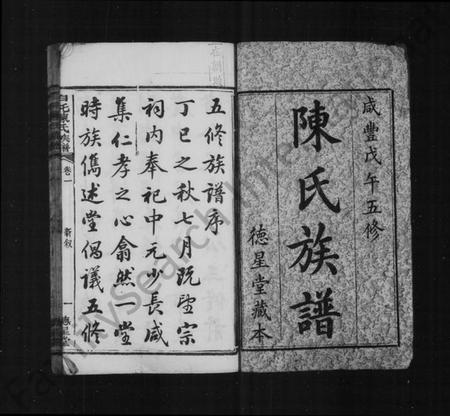 咸豐戊午五修
陳氏族譜
德星堂藏本
五修族譜序
丁巳之秋七月既望宗
祠内奉祀中元少長咸
集仁孝之心翕然一堂
時族儁述堂偶議五修
陳氏族譜
卷一
新叙
一
德星堂
FamilySearch International